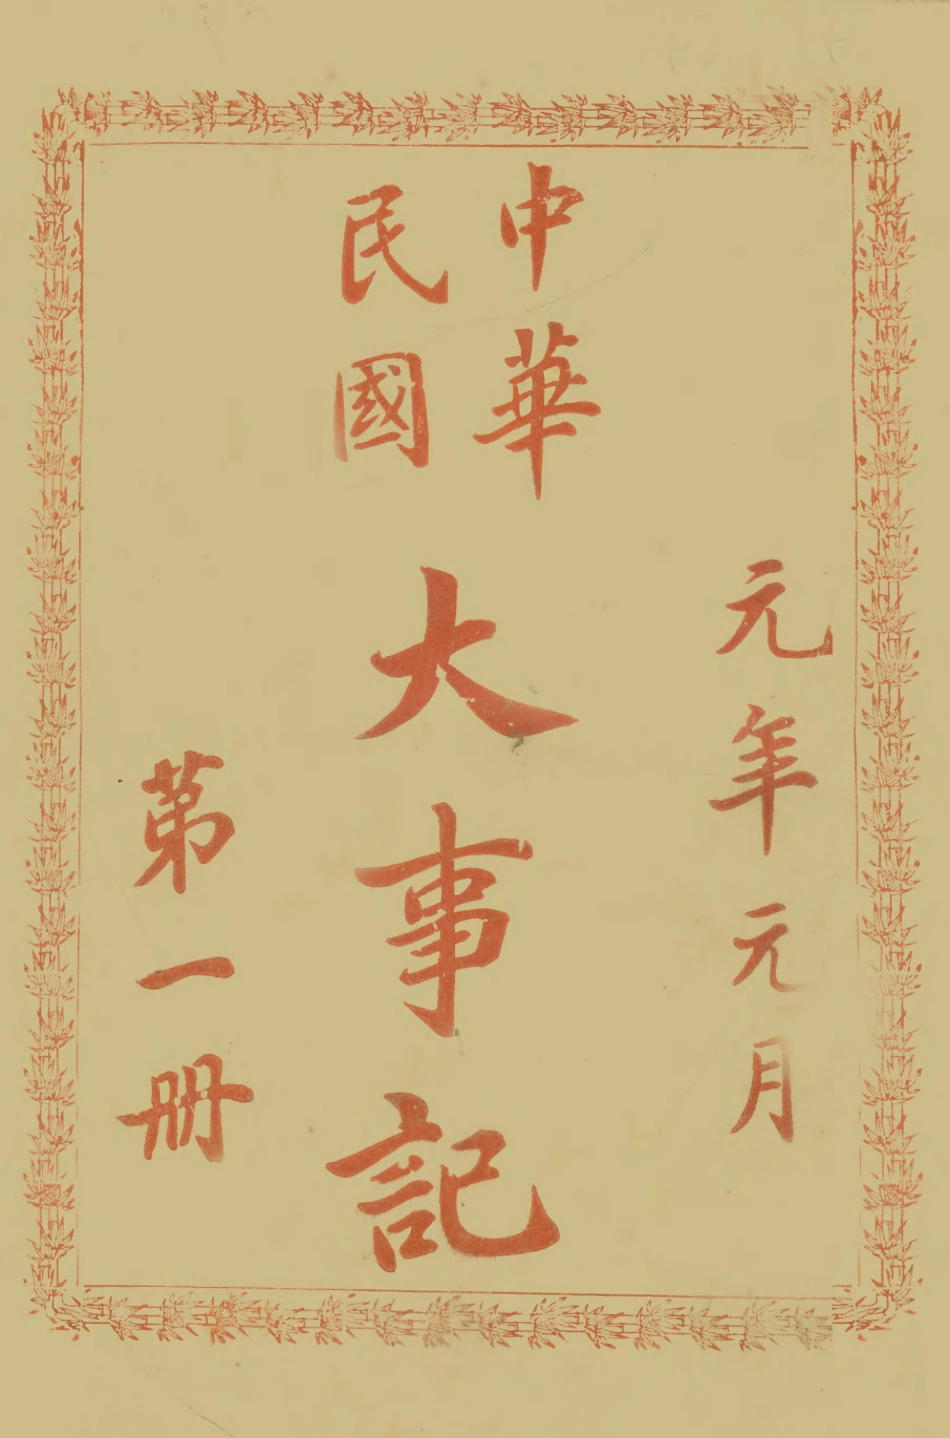 元年元月
中華
民國
大事記
第一冊